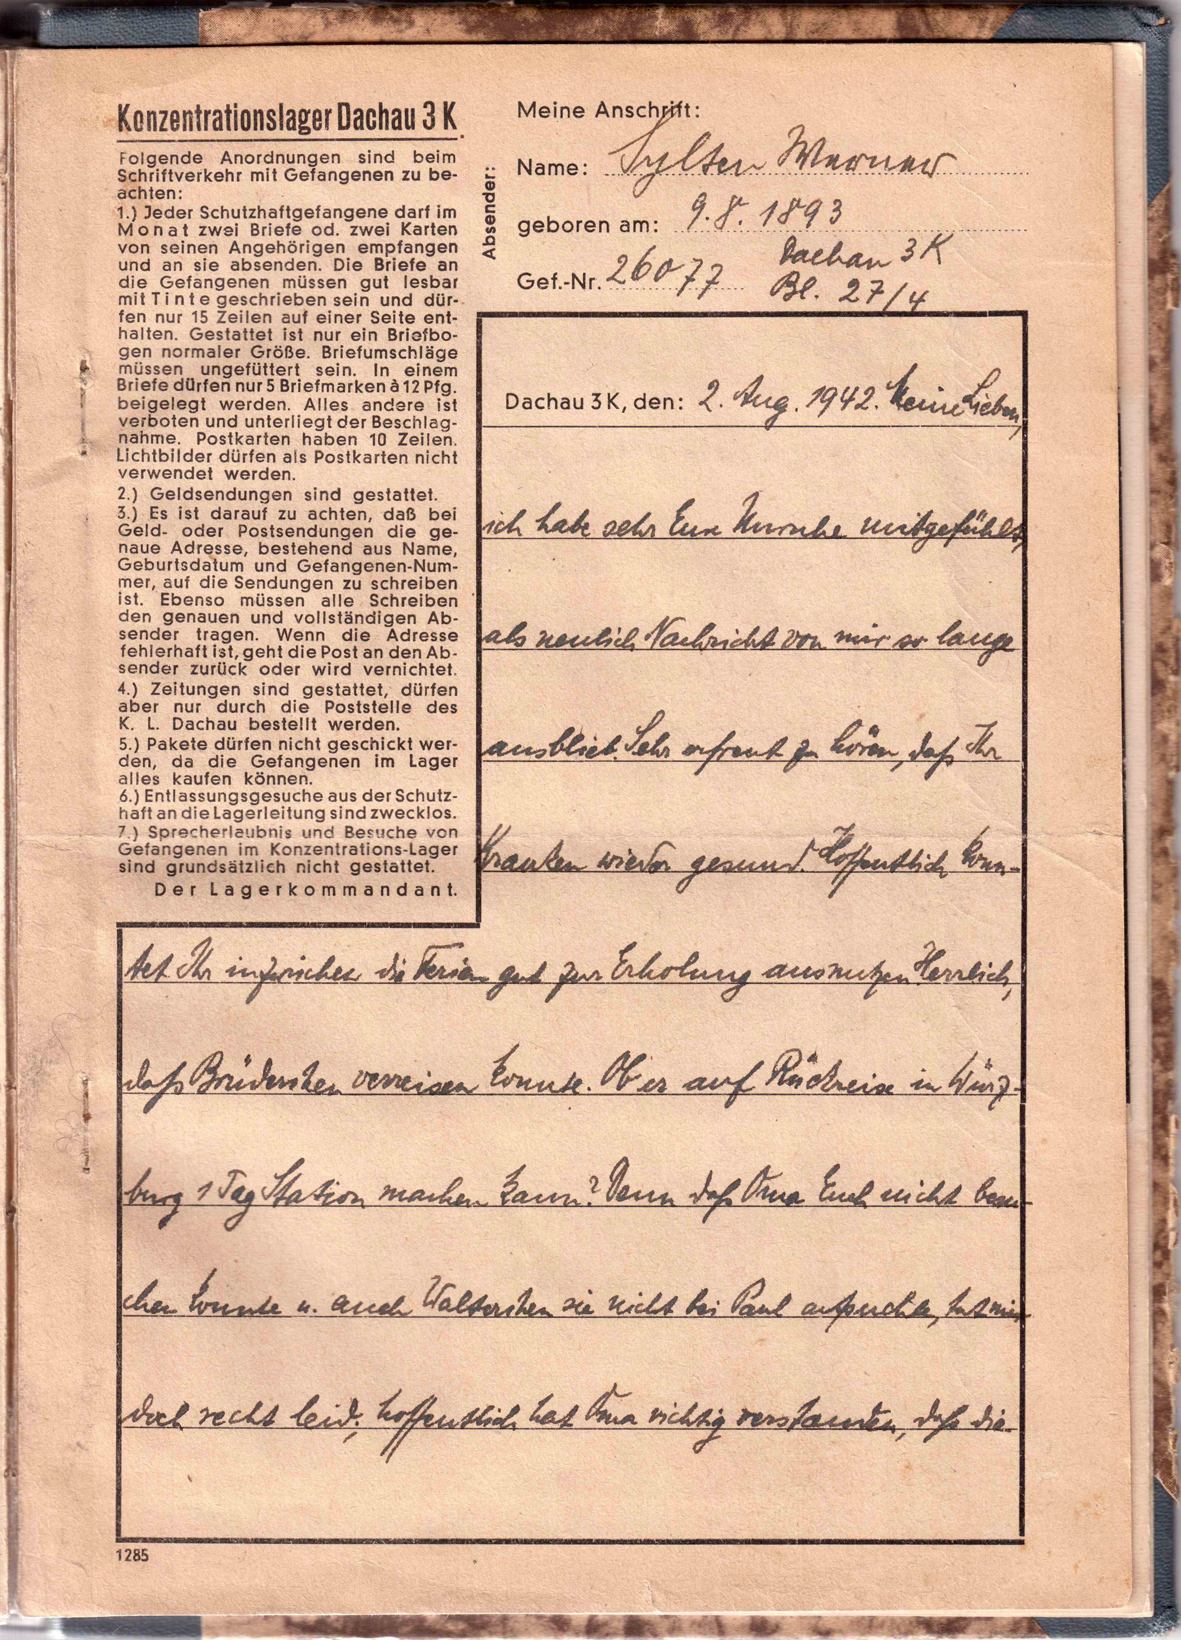 Konzentrationslager Dachau 3 K
Folgende Anordnungen sind beim
Schriftverkehr mit Gefangenen zu be-
achten:
1.) Jeder Schutzhaftgefangene darf im
Monat zwei Briefe od. zwei Karten
von seinen Angehörigen empfangen
und an sie absenden. Die Briefe an
die Gefangenen müssen gut lesbar
mit Tinte geschrieben sein und dür-
fen nur 15 Zeilen auf einer Seite ent-
halten. Gestattet ist nur ein Briefbo-
gen normaler Größe. Briefumschläge
müssen ungefüttert sein. In einem
Briefe dürfen nur 5 Briefmarken à 12 Pfg.
beigelegt werden. Alles andere ist
verboten und unterliegt der Beschlag-
nahme. Postkarten haben 10 Zeilen.
Lichtbilder dürfen als Postkarten nicht
verwendet werden.
2.) Geldsendungen sind gestattet.
3.) Es ist darauf zu achten, daß bei
Geld- oder Postsendungen die ge-
naue Adresse, bestehend aus Name,
Geburtsdatum und Gefangenen-Num-
mer, auf die Sendungen zu schreiben
ist. Ebenso müssen alle Schreiben
den genauen und vollständigen Ab-
sender tragen. Wenn die Adresse
fehlerhaft ist, geht die Post an den Ab-
sender zurück oder wird vernichtet.
4.) Zeitungen sind gestattet, dürfen
aber nur durch die Poststelle des
K. L. Dachau bestellt werden.
5.) Pakete dürfen nicht geschickt wer-
den, da die Gefangenen im Lager
alles kaufen können.
6.) Entlassungsgesuche aus der Schutz-
haft an die Lagerleitung sind zwecklos.
7.) Sprecherlaubnis und Besuche von
Gefangenen im Konzentrations-Lager
sind grundsätzlich nicht gestattet.
Der Lagerkommandant.
Absender:
Meine Anschrift:
Name: Sylten Werner
geboren am: 9.8.1893
Gef.-Nr. 26077 Dachau 3K
Bl. 27/4
Dachau 3 K, den: 2. Aug. 1942. Meine Lieben,
ich habe sehr Eure Unruhe mitgefühlt,
als neulich Nachricht von mir so lange
ausblieb. Sehr erfreut zu hören, daß Ihr
Kranken wieder gesund. Hoffentlich konn-
tet Ihr inzwischen die Ferien gut zur Erholung ausnutzen. Herrlich,
daß Brüderchen verreisen konnte. Ob er auf Rückreise in Würz-
burg 1 Tag Station machen kann? Denn daß Oma Euch nicht besu-
chen konnte u. auch Walterchen sie nicht bei Paul aufsuchte, tut mir
doch recht leid; hoffentlich hat Oma richtig verstanden, daß die-
1285